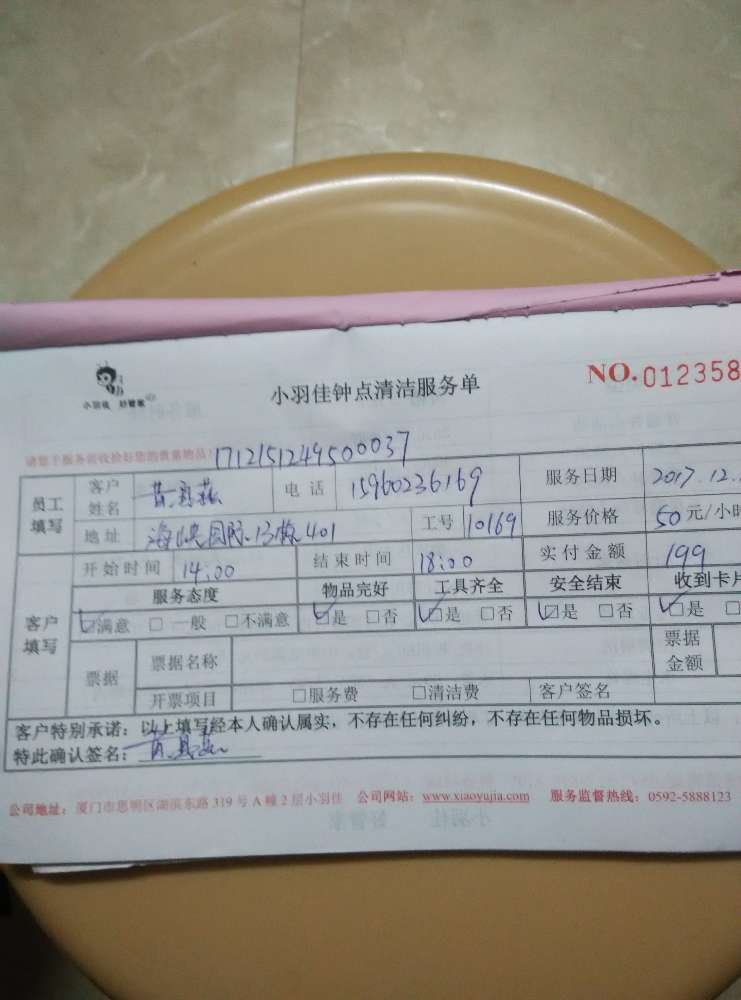 小羽佳 好管家
小羽佳钟点清洁服务单
NO.012358
请您于服务前收拾好您的贵重物品!
171215124950037
员工填写 客户姓名 黄 电话 15960236169 服务日期 2017.12.
地址 海峡国际13栋401 工号 10169 服务价格 50元/小时
客户填写 开始时间 14:00 结束时间 18:00 实付金额 199
服务态度 物品完好 工具齐全 安全结束 收到卡片
☑满意 □一般 □不满意 ☑是 □否 ☑是 □否 ☑是 □否 ☑是
票据 票据名称 票据金额
开票项目 □服务费 □清洁费 客户签名
客户特别承诺:以上填写经本人确认属实,不存在任何纠纷,不存在任何物品损坏。
特此确认签名:
公司地址:厦门市思明区湖滨东路319号A幢2层小羽佳 公司网站:www.xiaoyujia.com 服务监督热线:0592-5888123